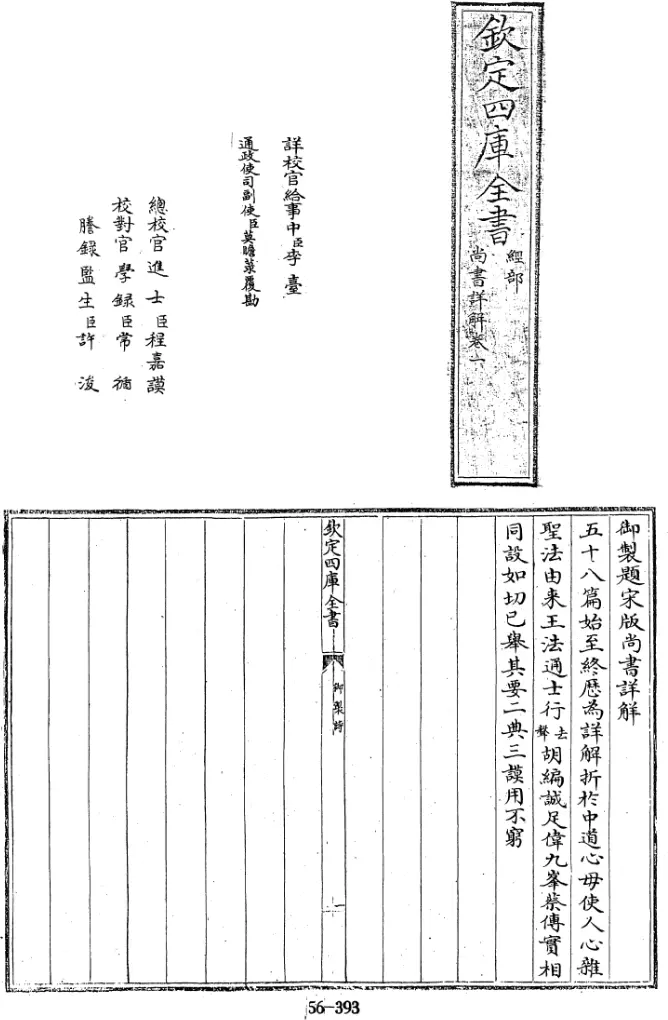 欽定四庫全書
經部
尚書詳解卷六
詳校官給事中臣李臺
通政使司副使臣莫瞻菉覆勘
總校官進士臣程嘉謨
校對官學錄臣常循
謄錄監生臣許浚
御製題宋版尚書詳解
五十八篇始至終歷為詳解折於中道心毋使人心雜
聖法由來王法通士行去聲胡編誠足偉九峯蔡傳實相
同設如切己舉其要二典三謨用不窮
欽定四庫全書
御製詩
一
56-393